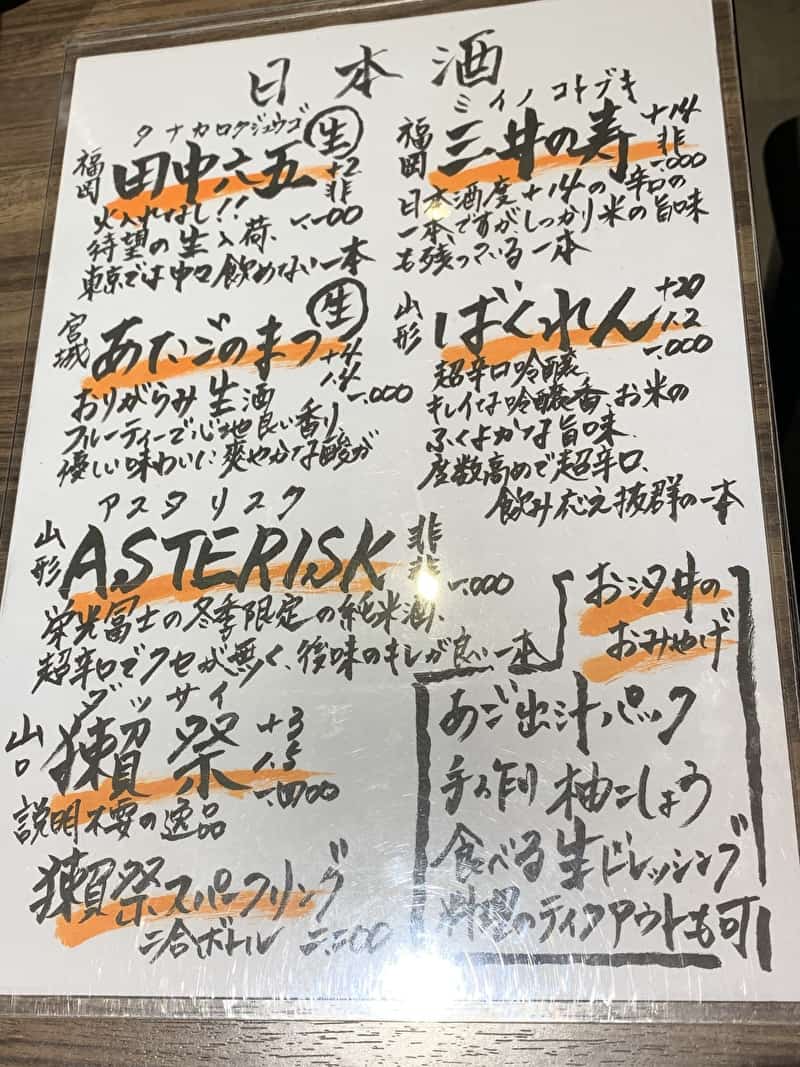 日本酒
タナカロクジュウゴ
福岡 田中六五 生
+2
非
一、一〇〇
火入れなし!!
待望の生入荷、
東京では中々飲めない一本
ミイノコトブキ
福岡 三井の寿
+14
非
一、〇〇〇
日本酒度+14の辛口の
一本、ですがしっかり米の旨味
も残っている一本
宮城 あたごのまつ 生
+4
1.4
一、〇〇〇
おりがらみ生酒
フルーティーで心地良い香り
優しい味わいに爽やかな酸が
山形 ばくれん
+20
1.2
一、〇〇〇
超辛口吟醸、
キレイな吟醸香、お米の
ふくよかな旨味
度数高めで超辛口、
飲み応え抜群の一本
アスタリスク
山形 ASTERISK
非
非
一、〇〇〇
栄光冨士の冬季限定の純米酒、
超辛口でクセが無く、後味のキレが良い一本
ダッサイ
山口 獺祭
+3
1.5
一、四〇〇
説明不要の逸品
獺祭スパークリング
二合ボトル 二、二〇〇
お汐井の
おみやげ
あご出汁パック
手作り 柚こしょう
食べる生ドレッシング
料理のテイクアウトも可